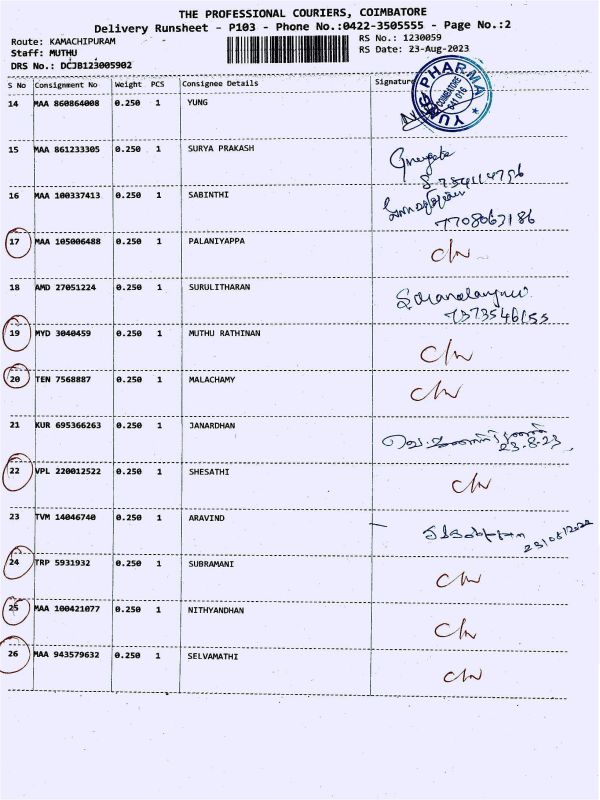 THE PROFESSIONAL COURIERS, COIMBATORE
Delivery Runsheet - P103 - Phone No.:0422-3505555 - Page No.:2
Route: KAMACHIPURAM RS No.: 1230059
Staff: MUTHU RS Date: 23-Aug-2023
DRS No.: DCJB123005902
S No Consignment No Weight PCS Consignee Details Signature
YUNG PHARMA
COIMBATORE
641 016
14 MAA 860864008 0.250 1 YUNG
15 MAA 861233305 0.250 1 SURYA PRAKASH
16 MAA 100337413 0.250 1 SABINTHI
7708067186
17 MAA 105006488 0.250 1 PALANIYAPPA
18 AMD 27051224 0.250 1 SURULITHARAN
19 MYD 3040459 0.250 1 MUTHU RATHINAN
20 TEN 7568887 0.250 1 MALACHAMY
21 KUR 695366263 0.250 1 JANARDHAN
23-8-23
22 VPL 220012522 0.250 1 SHESATHI
23 TVM 14046740 0.250 1 ARAVIND
24 TRP 5931932 0.250 1 SUBRAMANI
25 MAA 100421077 0.250 1 NITHYANDHAN
26 MAA 943579632 0.250 1 SELVAMATHI